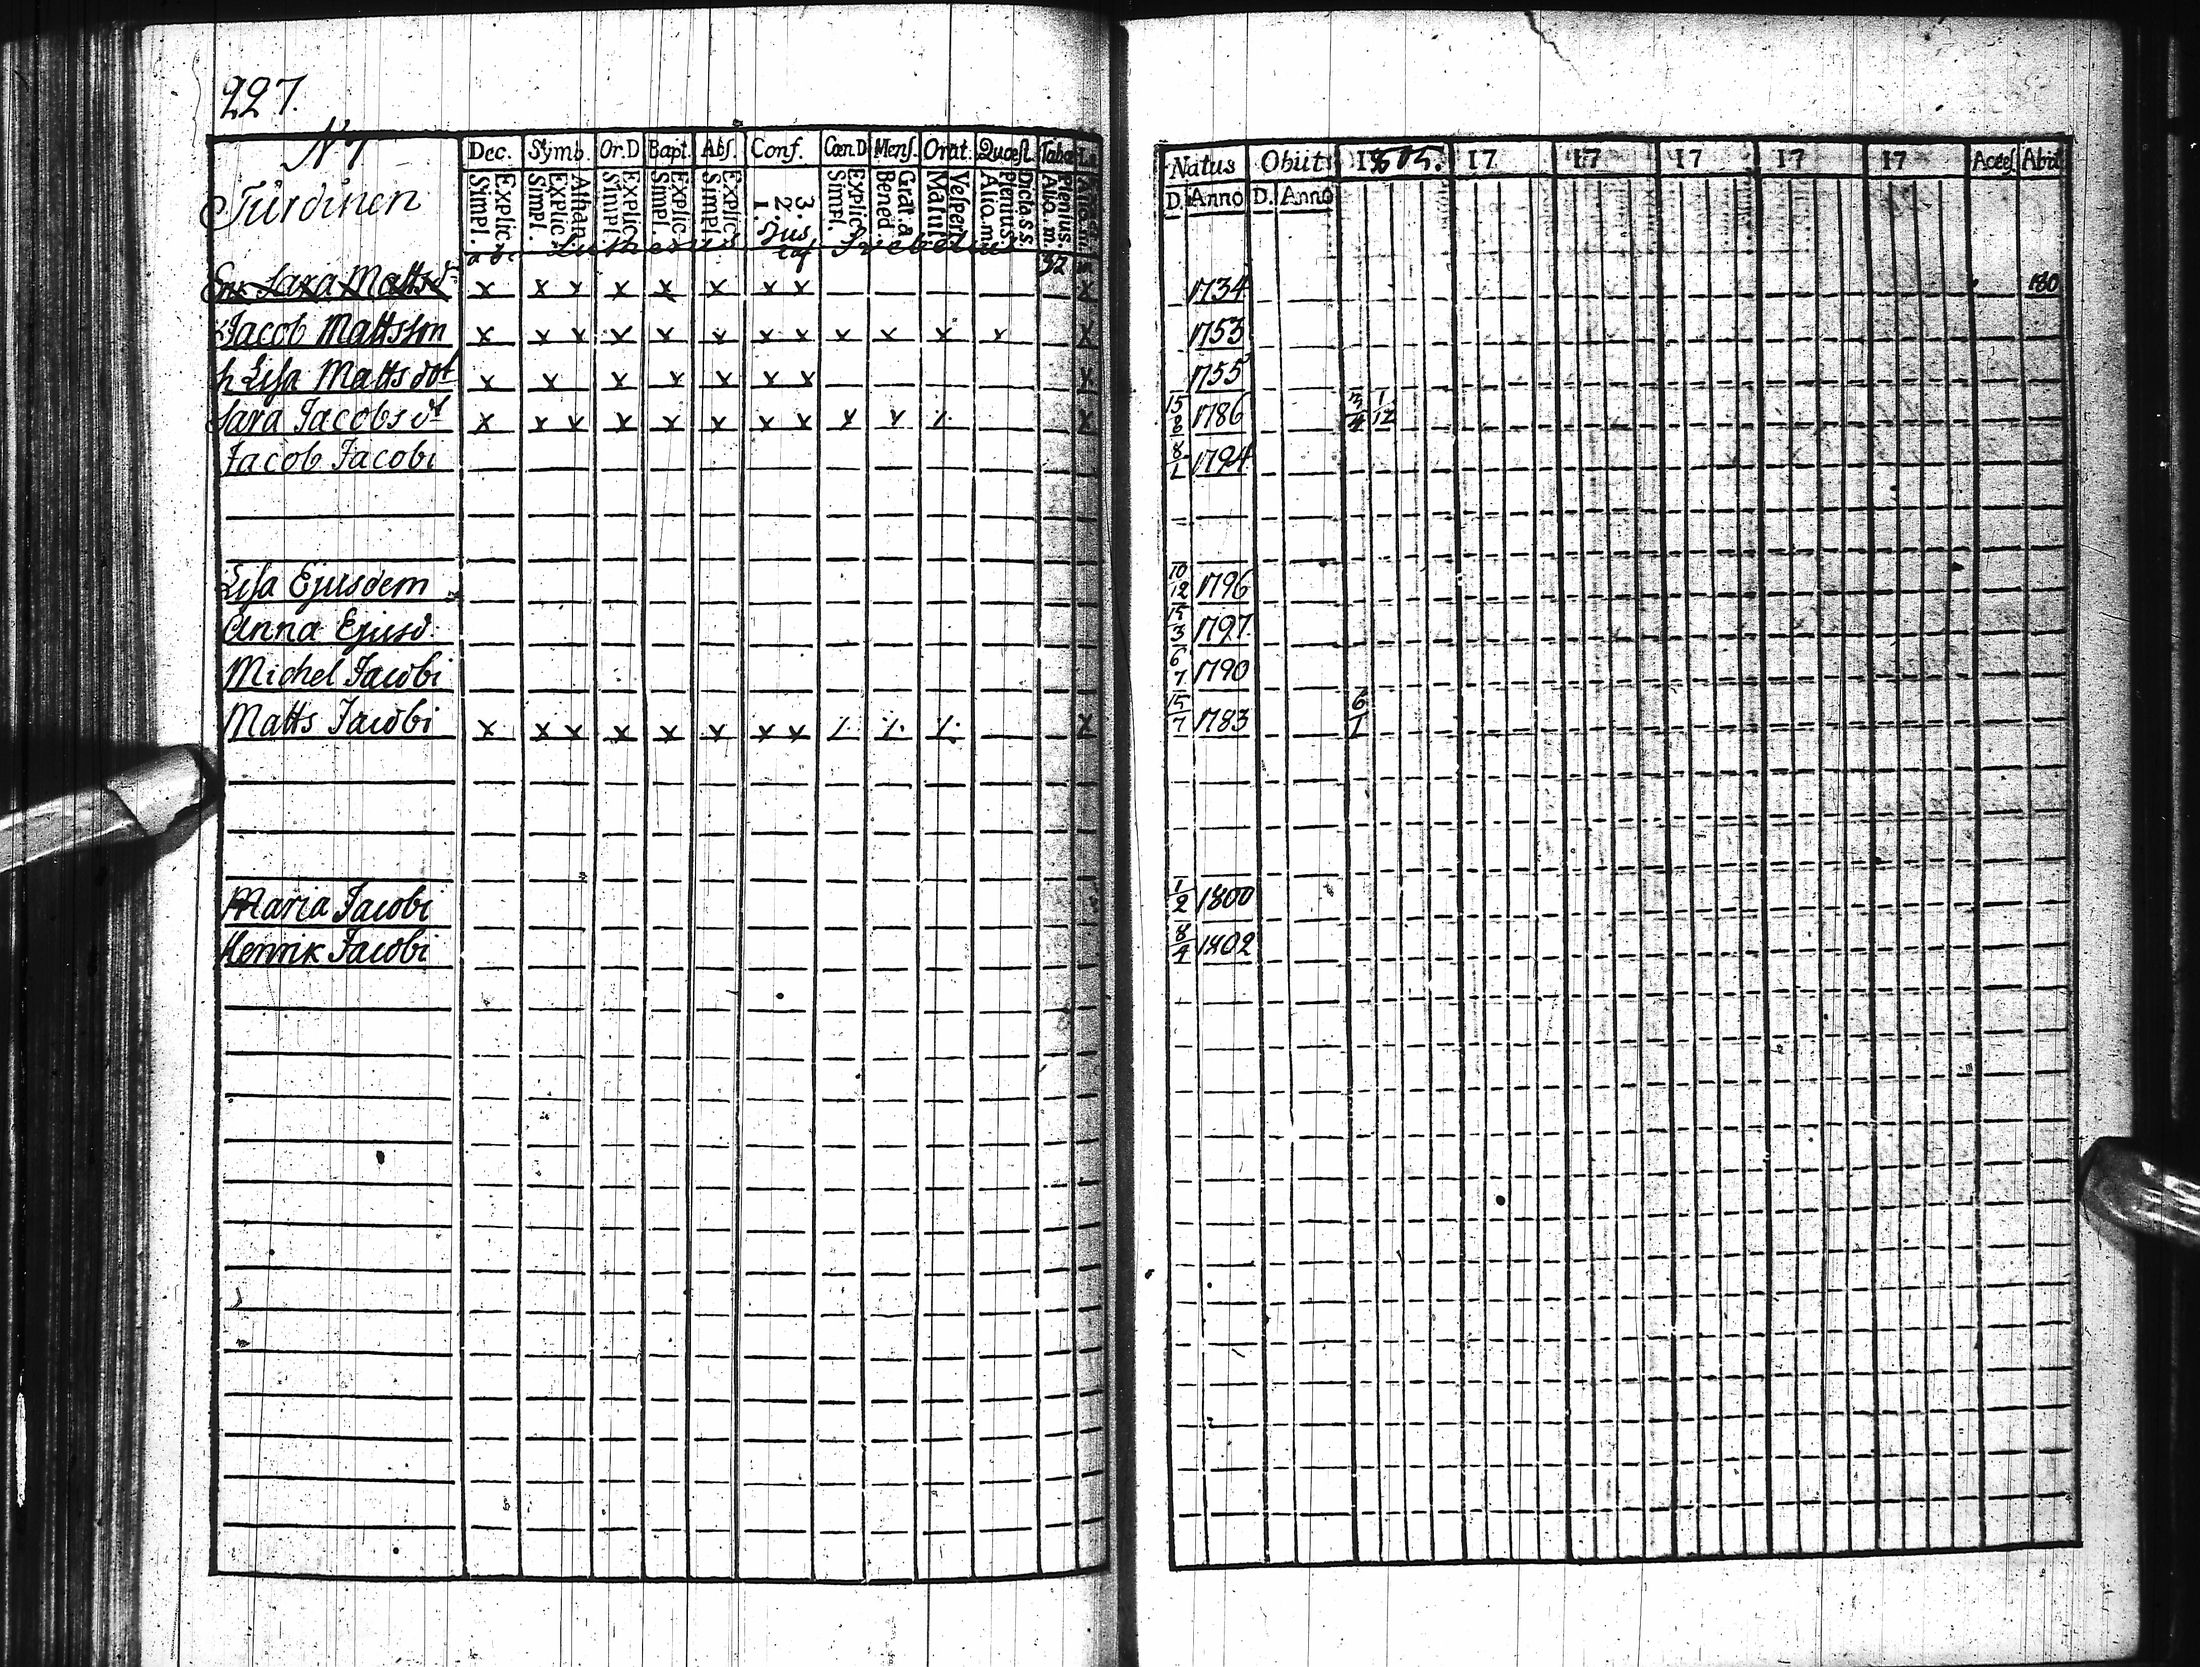 227.
N 7
Dec. Symb. Or.D Bapt. Abs. Conf. Cœn.D Mens. Orat. Quæst. Taba
Explic. Simpl. Athan. Explic. Simpl. Explic. Simpl. Explic. Simpl. Explic. Simpl. 3. 2. 1. Explic. Simpl. Grat. a. Bened. Vesper. Matut. Dicta.s.s. Plenius. Alio.m. Plenius. Alio.m.
a b c Lutherus Svebelius 32
Enk Sara Matts dr x x x x x x x x x
Jacob Mattsson x x x x x x x x x x x x x
h Lisa Matts dot x x x x x x x x
Sara Jacobs dt x x x x x x x x x x x
Jacob Jacobi
Lisa Ejusdem
Anna Ejusd.
Michel Jacobi
Matts Jacobi x x x x x x x x x
Maria Jacobi
Henrik Jacobi
Natus Obiit 1805. 17 17 17 17 17 Acces Abit
D. Anno D. Anno
1734 180
1753
1755
15 1786 3/4 1/12
8/1 1794
10/12 1796
15/3 1797.
6/7 1790
15/7 1783 6/1
1/2 1800
8/4 1802